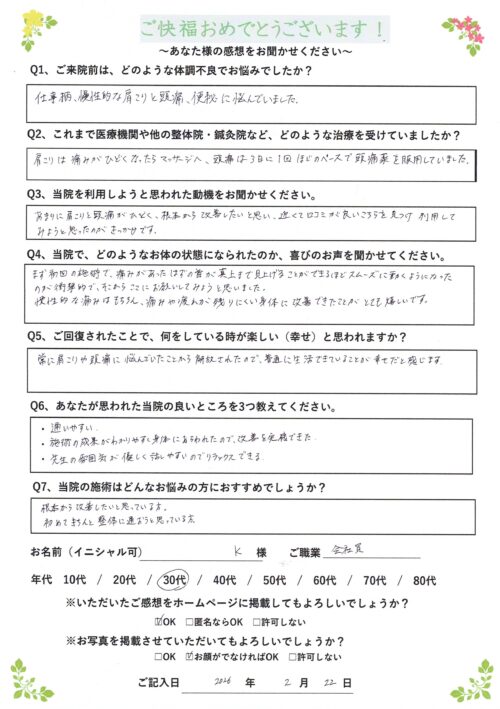 ご快福おめでとうございます！
～あなた様の感想をお聞かせください～
Q1、ご来院前は、どのような体調不良でお悩みでしたか？
仕事柄、慢性的な肩こりと頭痛、便秘に悩んでいました。
Q2、これまで医療機関や他の整体院・鍼灸院など、どのような治療を受けていましたか？
肩こりは痛みがひどくなったらマッサージへ、頭痛は3日に1回ほどのペースで頭痛薬を服用していました。
Q3、当院を利用しようと思われた動機をお聞かせください。
あまりに肩こりと頭痛がひどく、根本から改善したいと思い、近くて口コミが良いこちらを見つけ 利用して
みようと思ったのがきっかけです。
Q4、当院で、どのようなお体の状態になられたのか、喜びのお声を聞かせてください。
まず初回の施術で、痛みがあったはずの首が真上まで見上げることができるほどスムーズに動くようになった
のが衝撃的で、そこからここにお願いしてみようと思いました。
慢性的な痛みはもちろん、痛みや疲れが残りにくい身体に改善できたことがとても嬉しいです。
Q5、ご回復されたことで、何をしている時が楽しい（幸せ）と思われますか？
常に肩こりや頭痛に悩んでいたことから解放されたので、普通に生活できていることが幸せだと感じます。
Q6、あなたが思われた当院の良いところを3つ教えてください。
・通いやすい。
・施術の成果がわかりやすく身体にあらわれたので、改善を実感できた。
・先生の雰囲気が優しく話しやすいのでリラックスできる。
Q7、当院の施術はどんなお悩みの方におすすめでしょうか？
根本から改善したいと思っている方。
初めてきちんと整体に通おうと思っている方
お名前（イニシャル可） K 様 ご職業 会社員
年代 10代 / 20代 / 30代 / 40代 / 50代 / 60代 / 70代 / 80代
※いただいたご感想をホームページに掲載してもよろしいでしょうか？
☑OK □匿名ならOK □許可しない
※お写真を掲載させていただいてもよろしいでしょうか？
□OK ☑お顔がでなければOK □許可しない
ご記入日 2026 年 2 月 22 日